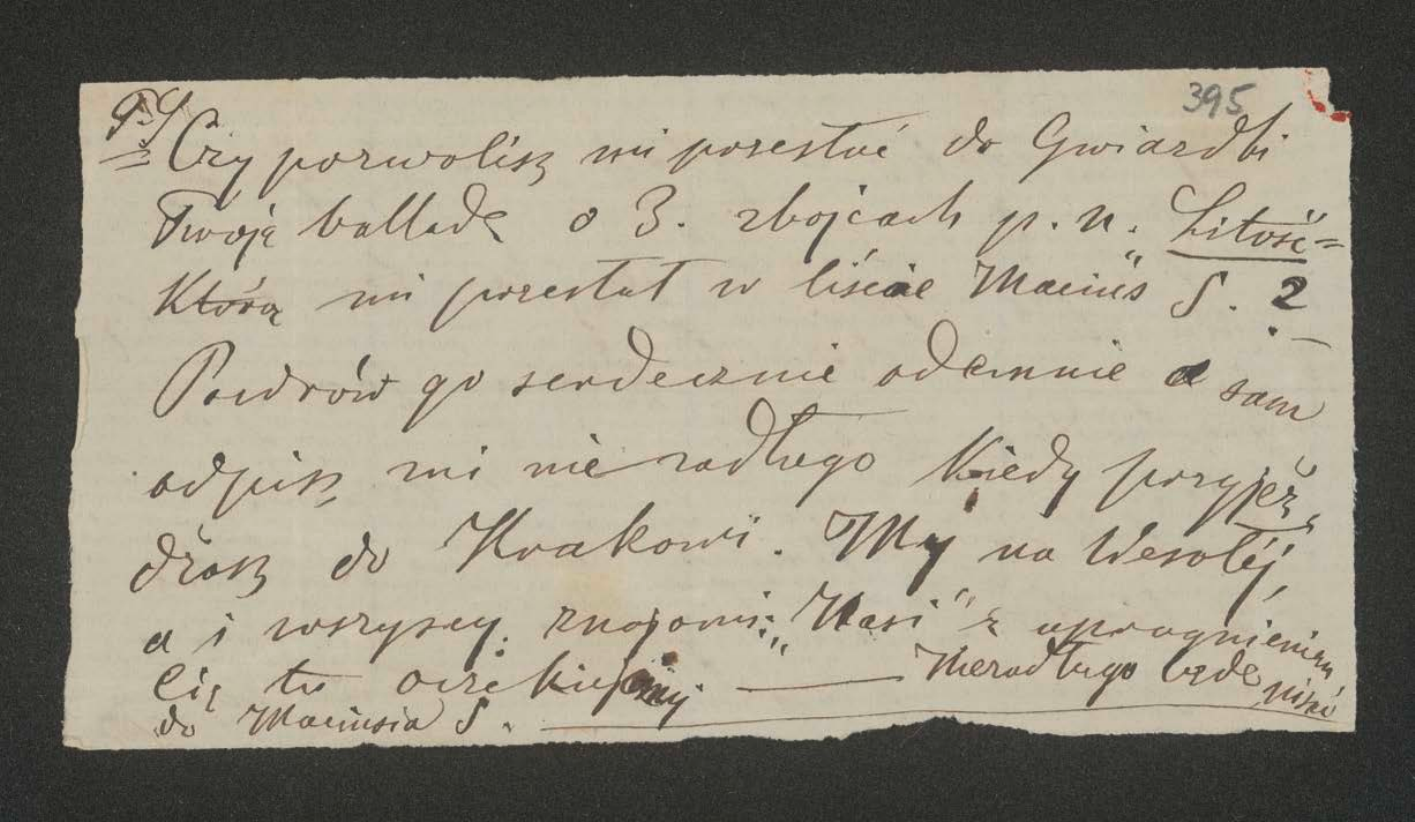 395
P.S Czy pozwolisz mi przesłać do Gwiazdki
Twoją balladę o 3. zbójcach p.n. Litość=
którą mi przesłał w liście Maciuś S. 2
Pozdrów go serdecznie odemnie a sam
odpisz mi niezadługo kiedy przyjeż„
dżasz do Krakowa. My na Wesołéj,
a i wszyscy znajomi: „Nasi" z upragnieniem
Cię tu oczekujemy — Niezadługo będę pisać
do Maciusia S.